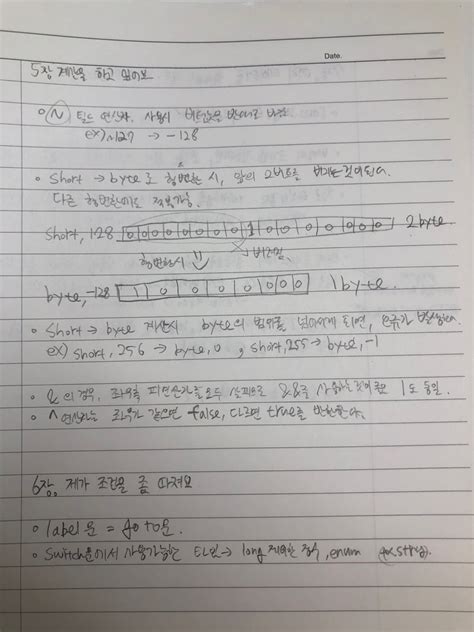 Date.
5장 계산을 하고 싶어요
○ ~ 틸드 연산자. 사용시 비트값을 반대로 바꿈
ex) ~127 → -128
○ short → byte로 형변환 시, 앞의 2버트를 버리는것이된다.
다른 형변환에도 적용가능.
short, 128 0 0 0 0 0 0 0 0 1 0 0 0 0 0 0 0 2byte
형변환시 버려짐
byte, -128 1 0 0 0 0 0 0 0 1byte.
○ short → byte 계산시 byte의 범위를 넘어가게 되면, 오류가 발생한다.
ex) short, 256 → byte, 0, short, 255 → byte, -1
○ &의 경우, 좌우측 피연산자를 모두 살피므로 &&를 사용하는것이좋다 | 도 동일.
○ ^ 연산자는 좌우가 같으면 false, 다르면 true를 반환한다.
6장. 제가 조건을 좀 따져요
○ label문 = go to문.
○ Switch문에서 사용가능한 타입 → long 제외한 정수, enum